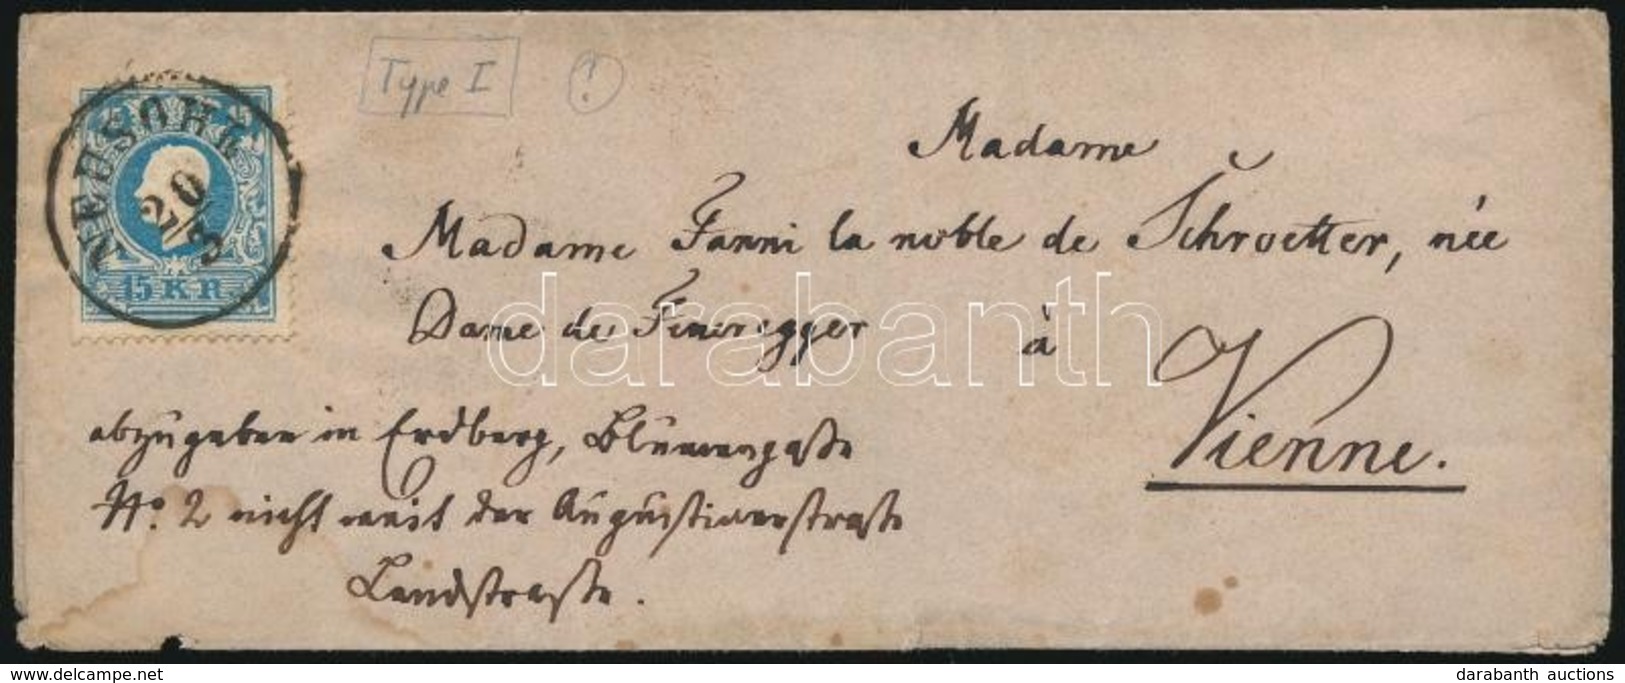 Type I !
NEUSOHL
20/3
15 KR.
Madame
Madame Fanni la noble de Schroetter, née
Dame de Feueregger à
Vienne.
abzugeben in Erdberg, Blumengasse
No. 2 nicht weit der Augustinerstrasse
Landstrasse.
darabanth
delcampe.net
darabanth auctions